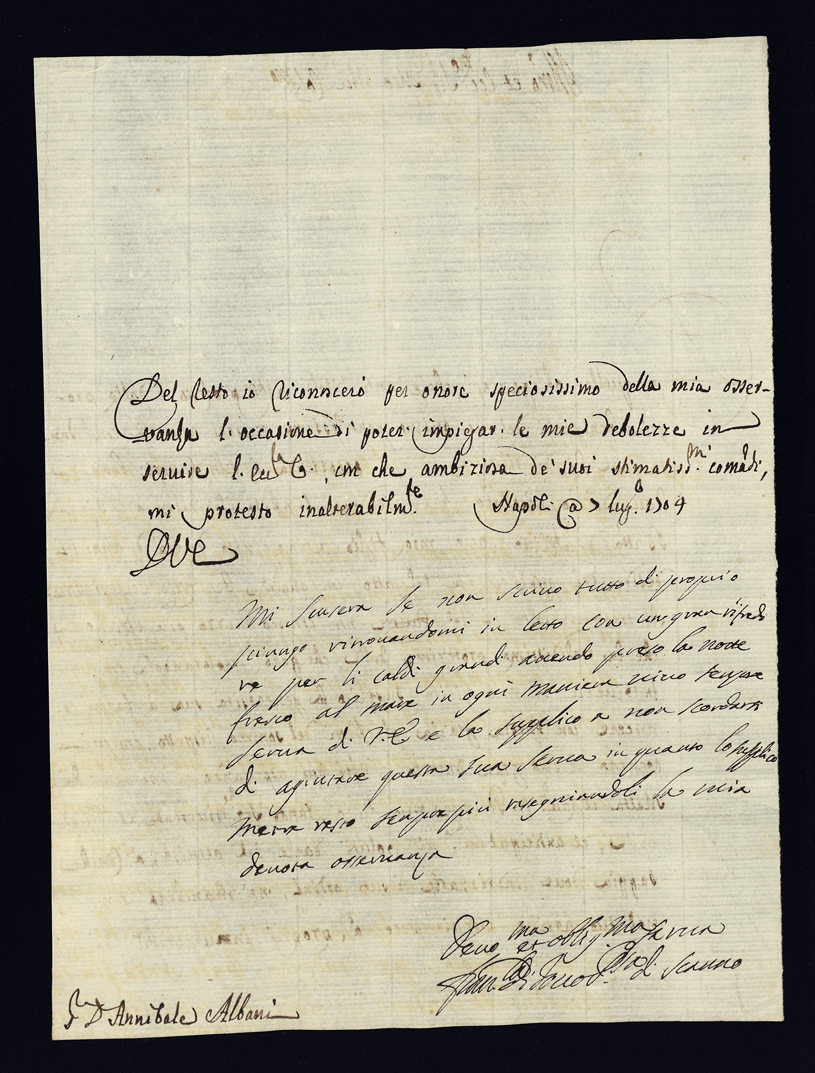 Del resto io riconoscerò per onore speciosissimo della mia osser-
vanza l'occasione di poter impiegar le mie debolezze in
servire l'Ecc.za V., con che ambiziosa de' suoi stimatiss.mi comādi,
mi protesto inalterabilm.te Napoli a 7 lug.o 1704
DVE
Mi scusera se non scrivo tutto di proprio
pungo ritrovandomi in letto con un gran rifredo
re per li caldi grandi avendo preso la notte
fresco al mare in ogni maniera vivo sempre
serva di V.E. e la supplico a non scordarsi
di agiutare questa sua serva in quanto lo supplico
mentre resto sempre più rasegniandoli la mia
devota osservanza
Devo.ma et oblig.ma serva
di Tocco P.ssa di
S.r D Annibale Albani